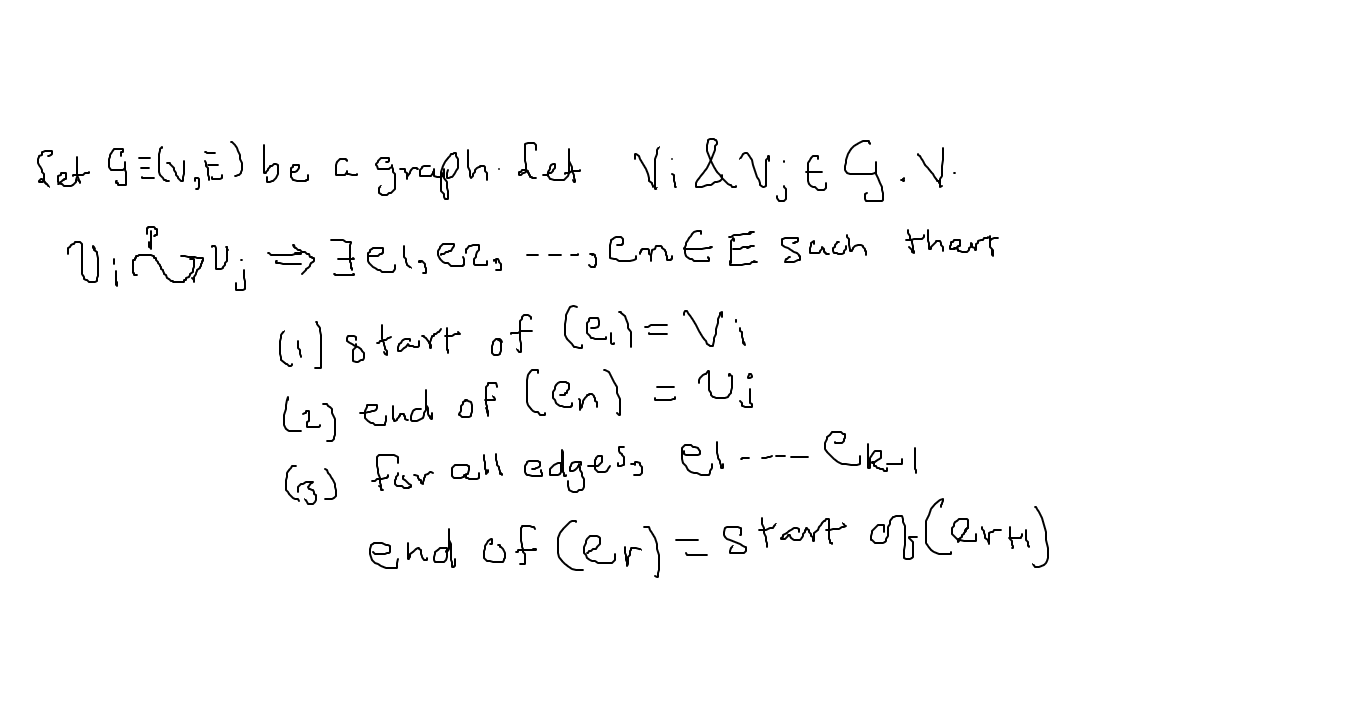 Let G≡(V,E) be a graph. Let Vi & Vj ∈ G.V.
Vi P⤳ Vj ⇒ ∃ e1, e2, ---, en ∈ E such thart
(1) start of (e1) = Vi
(2) end of (en) = Vj
(3) for all edges, e1 ---- ek-1
end of (er) = start of (er+1)